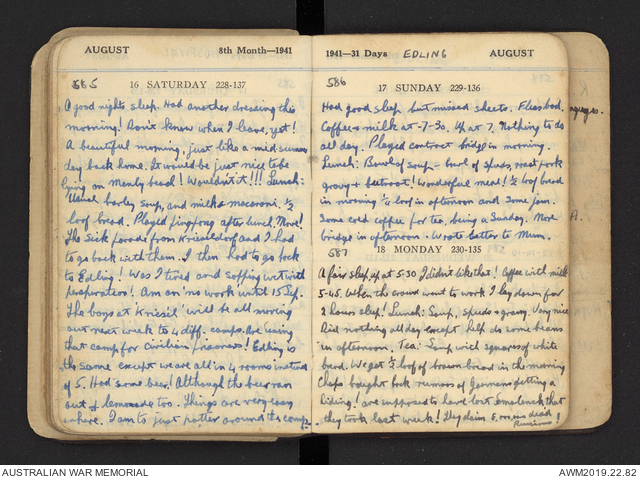 AUGUST 8th Month—1941
585
16 SATURDAY 228-137
A good nights sleep. Had another dressing this
morning! Don't know when I leave, yet!
A beautiful morning, just like a mid-summer
day back home. It would be just nice to be
lying on Manly beach! Wouldn't it!!! Lunch:
Usual barley soup, and milk & macaroni. ½
loaf bread. Played ping pong after lunch. More!
The Sick parade from and I had
to go back with them. I then had to go back
to Edling! Was I tired and sopping wet with
perspiration! Am on 'no work until 15 Sep.
The boys at will be all moving
out next week to 4 diff. camps. Are using
that camp for civilian prisoners! Edling is
the same except we are all in 4 rooms instead
of 5. Had some beer! Although the beer ran
out & lemonade too. Things are very easy
where. I am to just potter around the camp.
1941—31 Days EDLING AUGUST
586
17 SUNDAY 229-136
Had good sleep but missed sheets. Fleas bad.
Coffee & milk at 7-30. Up at 7. Nothing to do
all day. Played contract bridge in morning.
Lunch: Bowl of soup - bowl of spuds, roast pork
gravy & beetroot! Wonderful meal! ½ loaf bread
in morning ¼ loaf in afternoon and some jam.
Some cold coffee for tea, being a Sunday. More
bridge in afternoon. Wrote letter to Mum.
587
18 MONDAY 230-135
A fair sleep, up at 5-30 I didn't like that! Coffee with milk
5-45. When the crowd went to work I lay down for
2 hours sleep! Lunch: Soup, spuds & gravy. Very nice
Did nothing all day except help do some beans
in afternoon. Tea: Soup with squares of white
bread. We get ½ loaf of brown bread in the morning
Chaps bought back rumors of Germans getting a
hiding! are supposed to have lost Smolensk that
they took last week! They claim 5, dead
Russians!
A.
AUSTRALIAN WAR MEMORIAL AWM2019.22.82